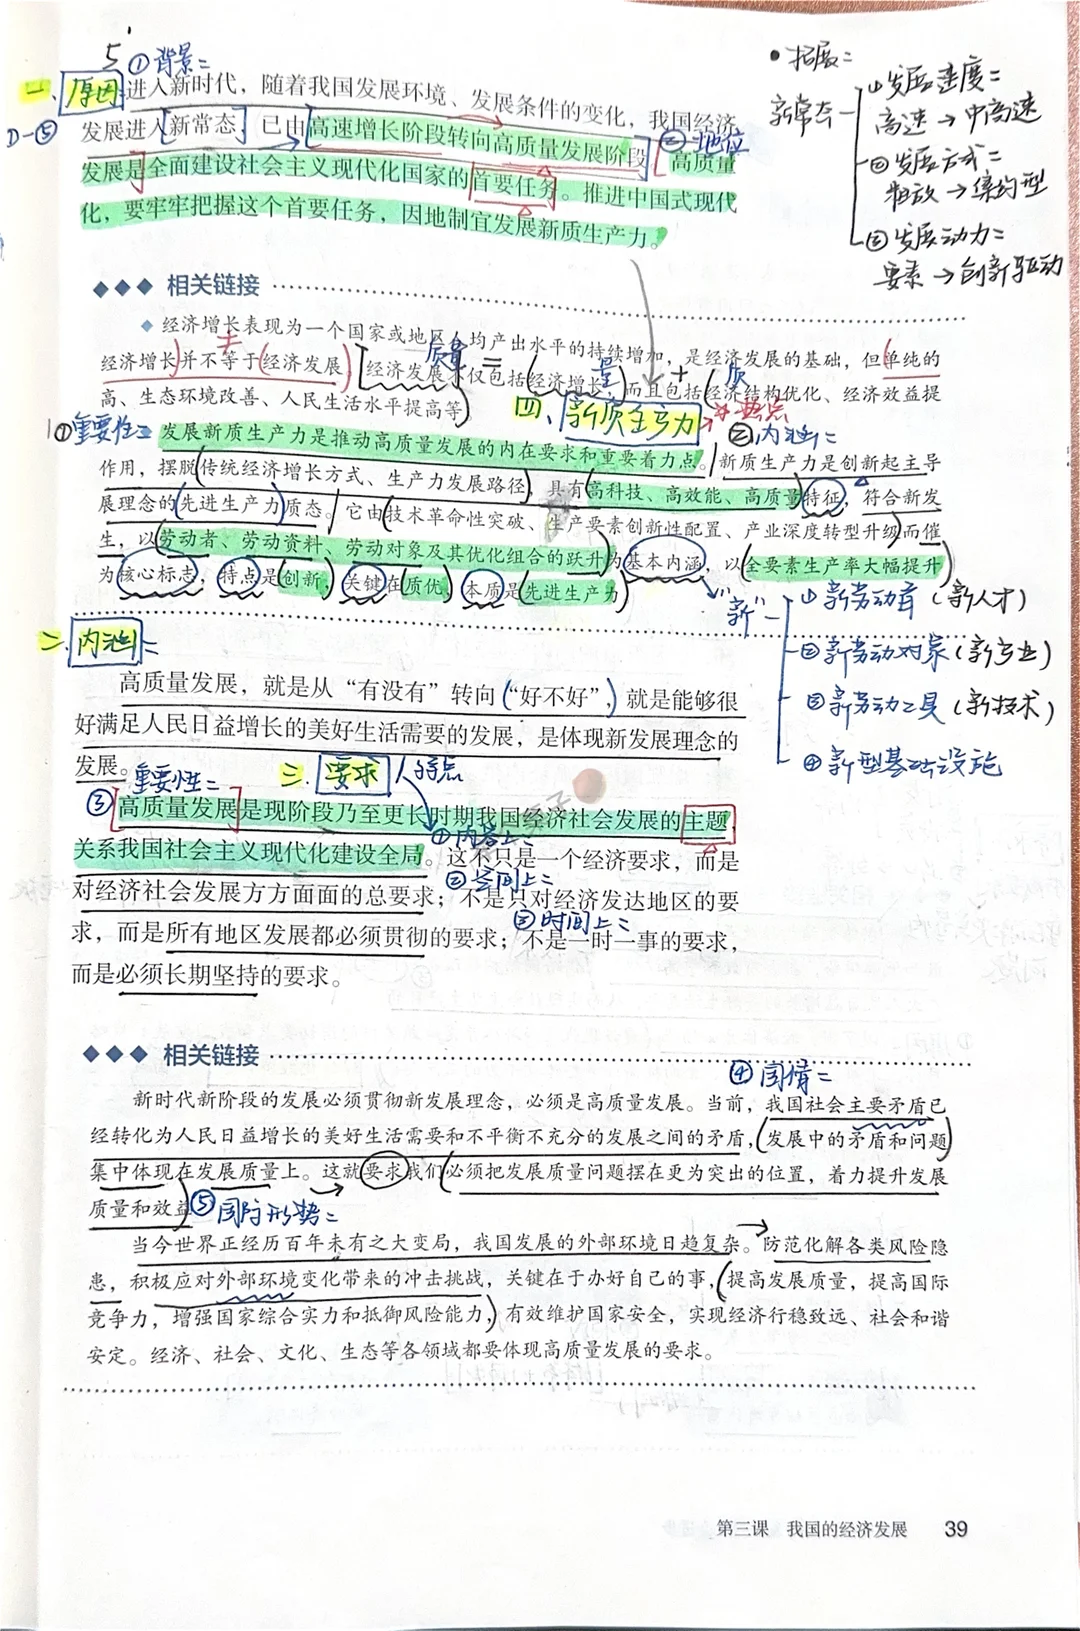 5 ①背景：
•拓展：
一、原因：进入新时代，随着我国发展环境、发展条件的变化，我国经济
①-⑤ 发展进入新常态，已由高速增长阶段转向高质量发展阶段 ②地位 高质量
发展是全面建设社会主义现代化国家的首要任务。推进中国式现代
化，要牢牢把握这个首要任务，因地制宜发展新质生产力。
新常态
①发展速度：
高速→中高速
②发展方式：
粗放→集约型
③发展动力：
要素→创新驱动
相关链接
经济增长表现为一个国家或地区人均产出水平的持续增加，是经济发展的基础，但单纯的
≠ 质量 = 量 + 质
经济增长并不等于经济发展 经济发展不仅包括经济增长，而且包括经济结构优化、经济效益提
高、生态环境改善、人民生活水平提高等
四、新质生产力→☆热点
①重要性：发展新质生产力是推动高质量发展的内在要求和重要着力点。新质生产力是创新起主导
②内涵：
作用，摆脱传统经济增长方式、生产力发展路径，具有高科技、高效能、高质量特征，符合新发
展理念的先进生产力质态。它由技术革命性突破、生产要素创新性配置、产业深度转型升级而催
生，以劳动者、劳动资料、劳动对象及其优化组合的跃升为基本内涵，以全要素生产率大幅提升
为核心标志，特点是创新，关键在质优，本质是先进生产力
“新”
①新劳动者（新人才）
②新劳动对象（新产业）
③新劳动工具（新技术）
④新型基础设施
二、内涵：
高质量发展，就是从“有没有”转向“好不好”，就是能够很
好满足人民日益增长的美好生活需要的发展，是体现新发展理念的
发展。
重要性： 三、要求
③高质量发展是现阶段乃至更长时期我国经济社会发展的主题，
①内容上：
关系我国社会主义现代化建设全局。这不只是一个经济要求，而是
②空间上：
对经济社会发展方方面面的总要求；不是只对经济发达地区的要
③时间上：
求，而是所有地区发展都必须贯彻的要求；不是一时一事的要求，
而是必须长期坚持的要求。
相关链接
④国情：
新时代新阶段的发展必须贯彻新发展理念，必须是高质量发展。当前，我国社会主要矛盾已
经转化为人民日益增长的美好生活需要和不平衡不充分的发展之间的矛盾，发展中的矛盾和问题
集中体现在发展质量上。这就要求我们必须把发展质量问题摆在更为突出的位置，着力提升发展
质量和效益
⑤国际形势：
当今世界正经历百年未有之大变局，我国发展的外部环境日趋复杂。防范化解各类风险隐
患，积极应对外部环境变化带来的冲击挑战，关键在于办好自己的事，提高发展质量，提高国际
竞争力，增强国家综合实力和抵御风险能力，有效维护国家安全，实现经济行稳致远、社会和谐
安定。经济、社会、文化、生态等各领域都要体现高质量发展的要求。
第三课 我国的经济发展 39